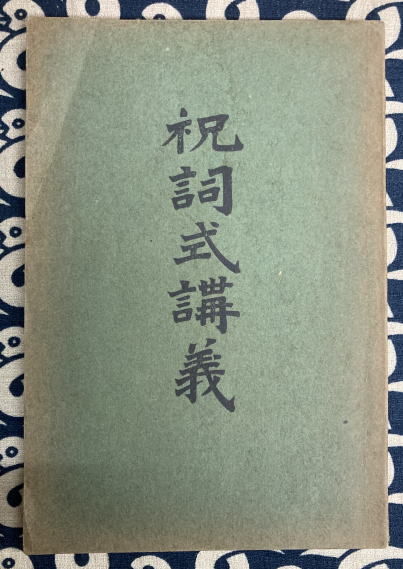 祝詞式講義